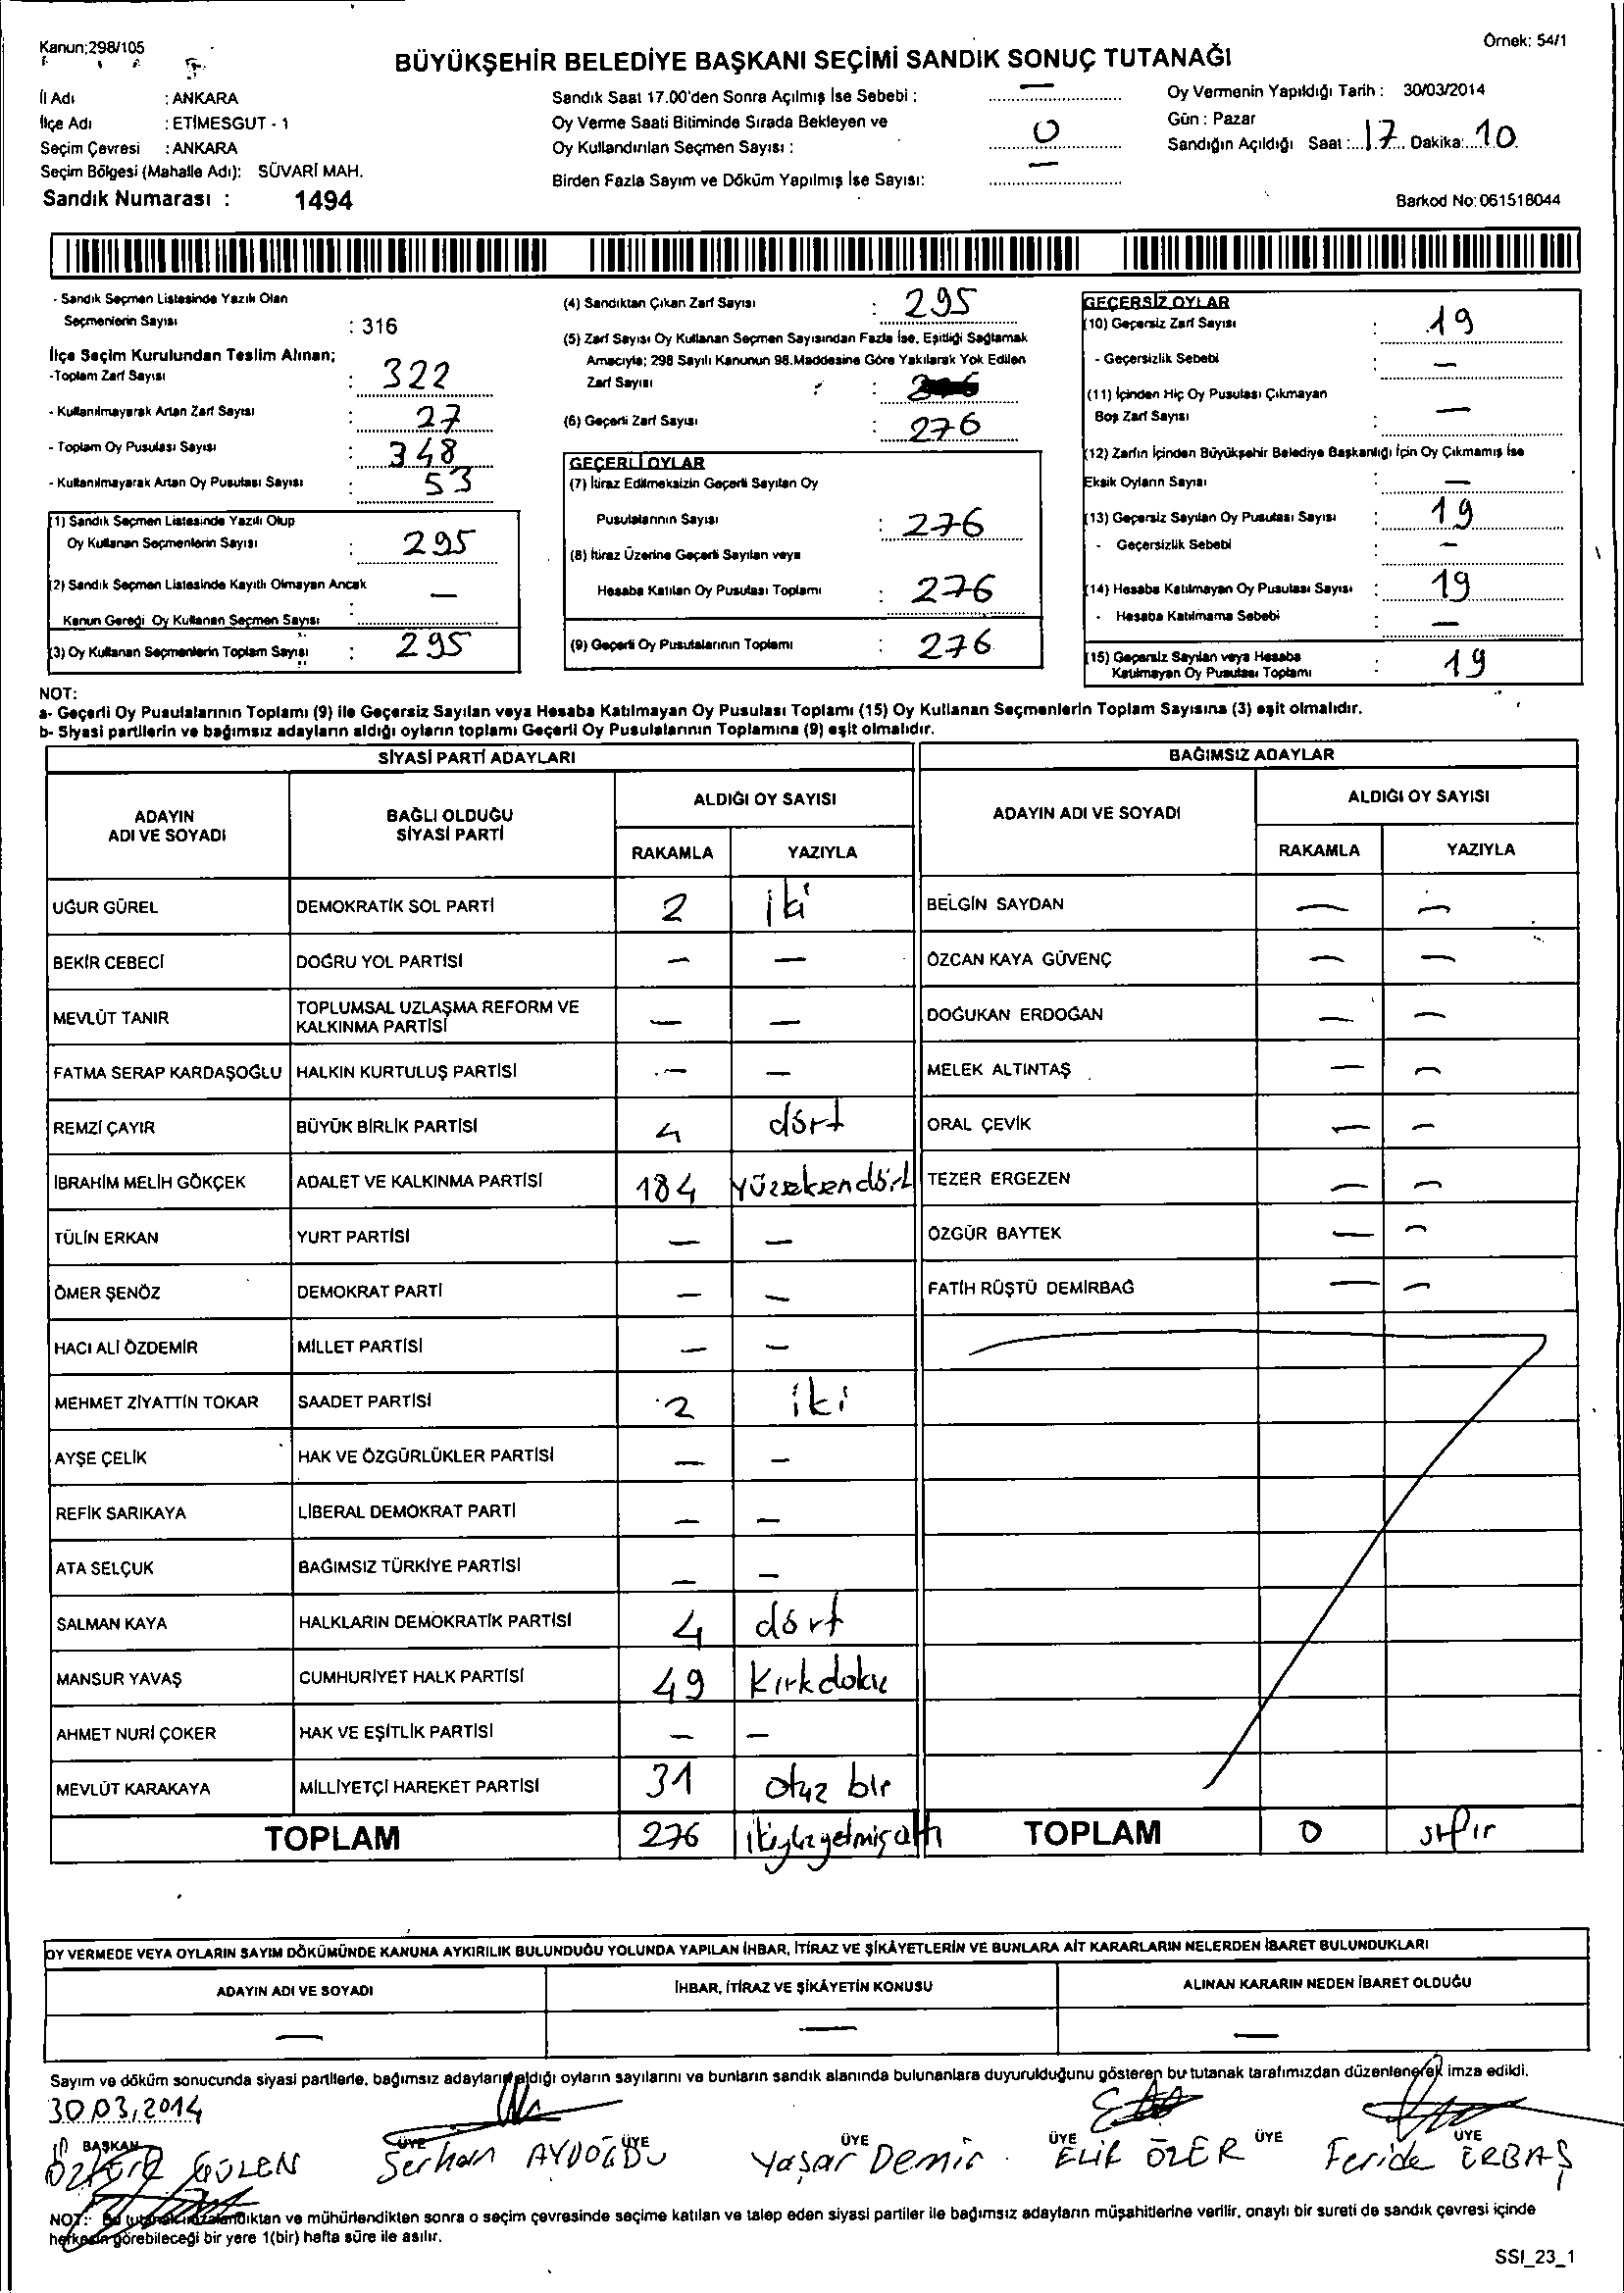 Kanun;298/105
Örnek: 54/1
BÜYÜKŞEHİR BELEDİYE BAŞKANI SEÇİMİ SANDIK SONUÇ TUTANAĞI
İl Adı : ANKARA
İlçe Adı : ETİMESGUT - 1
Seçim Çevresi : ANKARA
Seçim Bölgesi (Mahalle Adı): SÜVARİ MAH.
Sandık Numarası : 1494
Sandık Saat 17.00'den Sonra Açılmış İse Sebebi : —
Oy Verme Saati Bitiminde Sırada Bekleyen ve
Oy Kullandırılan Seçmen Sayısı : 0
Birden Fazla Sayım ve Döküm Yapılmış İse Sayısı: —
Oy Vermenin Yapıldığı Tarih : 30/03/2014
Gün : Pazar
Sandığın Açıldığı Saat :...17... Dakika:...10.
Barkod No:061518044
- Sandık Seçmen Listesinde Yazılı Olan
Seçmenlerin Sayısı : 316
İlçe Seçim Kurulundan Teslim Alınan;
-Toplam Zarf Sayısı : 322
- Kullanılmayarak Artan Zarf Sayısı : 27
- Toplam Oy Pusulası Sayısı : 348
- Kullanılmayarak Artan Oy Pusulası Sayısı : 53
(1) Sandık Seçmen Listesinde Yazılı Olup
Oy Kullanan Seçmenlerin Sayısı : 295
(2) Sandık Seçmen Listesinde Kayıtlı Olmayan Ancak
Kanun Gereği Oy Kullanan Seçmen Sayısı : —
(3) Oy Kullanan Seçmenlerin Toplam Sayısı : 295
(4) Sandıktan Çıkan Zarf Sayısı : 295
(5) Zarf Sayısı Oy Kullanan Seçmen Sayısından Fazla İse, Eşitliği Sağlamak
Amacıyla; 298 Sayılı Kanunun 98.Maddesine Göre Yakılarak Yok Edilen
Zarf Sayısı :
(6) Geçerli Zarf Sayısı : 276
GEÇERLİ OYLAR
(7) İtiraz Edilmeksizin Geçerli Sayılan Oy
Pusulalarının Sayısı : 276
(8) İtiraz Üzerine Geçerli Sayılan veya
Hesaba Katılan Oy Pusulası Toplamı : 276
(9) Geçerli Oy Pusulalarının Toplamı : 276
GEÇERSİZ OYLAR
(10) Geçersiz Zarf Sayısı : 19
- Geçersizlik Sebebi : —
(11) İçinden Hiç Oy Pusulası Çıkmayan
Boş Zarf Sayısı : —
(12) Zarfın İçinden Büyükşehir Belediye Başkanlığı İçin Oy Çıkmamış İse
Eksik Oyların Sayısı : —
(13) Geçersiz Sayılan Oy Pusulası Sayısı : 19
- Geçersizlik Sebebi : —
(14) Hesaba Katılmayan Oy Pusulası Sayısı : 19
- Hesaba Katılmama Sebebi : —
(15) Geçersiz Sayılan veya Hesaba
Katılmayan Oy Pusulası Toplamı : 19
NOT:
a- Geçerli Oy Pusulalarının Toplamı (9) ile Geçersiz Sayılan veya Hesaba Katılmayan Oy Pusulası Toplamı (15) Oy Kullanan Seçmenlerin Toplam Sayısına (3) eşit olmalıdır.
b- Siyasi partilerin ve bağımsız adayların aldığı oyların toplamı Geçerli Oy Pusulalarının Toplamına (9) eşit olmalıdır.
SİYASİ PARTİ ADAYLARI BAĞIMSIZ ADAYLAR
ADAYIN ADI VE SOYADI BAĞLI OLDUĞU SİYASİ PARTİ ALDIĞI OY SAYISI ADAYIN ADI VE SOYADI ALDIĞI OY SAYISI
RAKAMLA YAZIYLA RAKAMLA YAZIYLA
UĞUR GÜREL DEMOKRATİK SOL PARTİ 2 iki BELGİN SAYDAN — —
BEKİR CEBECİ DOĞRU YOL PARTİSİ — — ÖZCAN KAYA GÜVENÇ — —
MEVLÜT TANIR TOPLUMSAL UZLAŞMA REFORM VE KALKINMA PARTİSİ — — DOĞUKAN ERDOĞAN — —
FATMA SERAP KARDAŞOĞLU HALKIN KURTULUŞ PARTİSİ — — MELEK ALTINTAŞ — —
REMZİ ÇAYIR BÜYÜK BİRLİK PARTİSİ 4 dört ORAL ÇEVİK — —
İBRAHİM MELİH GÖKÇEK ADALET VE KALKINMA PARTİSİ 184 yüzseksendört TEZER ERGEZEN — —
TÜLİN ERKAN YURT PARTİSİ — — ÖZGÜR BAYTEK — —
ÖMER ŞENÖZ DEMOKRAT PARTİ — — FATİH RÜŞTÜ DEMİRBAĞ — —
HACI ALİ ÖZDEMİR MİLLET PARTİSİ — —
MEHMET ZİYATTİN TOKAR SAADET PARTİSİ 2 iki
AYŞE ÇELİK HAK VE ÖZGÜRLÜKLER PARTİSİ — —
REFİK SARIKAYA LİBERAL DEMOKRAT PARTİ — —
ATA SELÇUK BAĞIMSIZ TÜRKİYE PARTİSİ — —
SALMAN KAYA HALKLARIN DEMOKRATİK PARTİSİ 4 dört
MANSUR YAVAŞ CUMHURİYET HALK PARTİSİ 49 Kırkdoku
AHMET NURİ ÇOKER HAK VE EŞİTLİK PARTİSİ — —
MEVLÜT KARAKAYA MİLLİYETÇİ HAREKET PARTİSİ 31 otuz bir
TOPLAM 276 ikiyüzyetmişaltı TOPLAM 0 sıfır
OY VERMEDE VEYA OYLARIN SAYIM DÖKÜMÜNDE KANUNA AYKIRILIK BULUNDUĞU YOLUNDA YAPILAN İHBAR, İTİRAZ VE ŞİKÂYETLERİN VE BUNLARA AİT KARARLARIN NELERDEN İBARET BULUNDUKLARI
ADAYIN ADI VE SOYADI İHBAR, İTİRAZ VE ŞİKÂYETİN KONUSU ALINAN KARARIN NEDEN İBARET OLDUĞU
— — —
Sayım ve döküm sonucunda siyasi partilerle, bağımsız adayların aldığı oyların sayılarını ve bunların sandık alanında bulunanlara duyurulduğunu gösteren bu tutanak tarafımızdan düzenlenerek imza edildi.
30.03.2014
BAŞKAN ÜYE ÜYE ÜYE ÜYE ÜYE ÜYE
GÜLEN Serhan AYDOĞDU Yaşar Demir ELİF ÖZER Feride ERBAŞ
NOT: Bu tutanak imzalandıktan ve mühürlendikten sonra o seçim çevresinde seçime katılan ve talep eden siyasi partiler ile bağımsız adayların müşahitlerine verilir, onaylı bir sureti de sandık çevresi içinde
herkesin görebileceği bir yere 1(bir) hafta süre ile asılır.
SSI_23_1